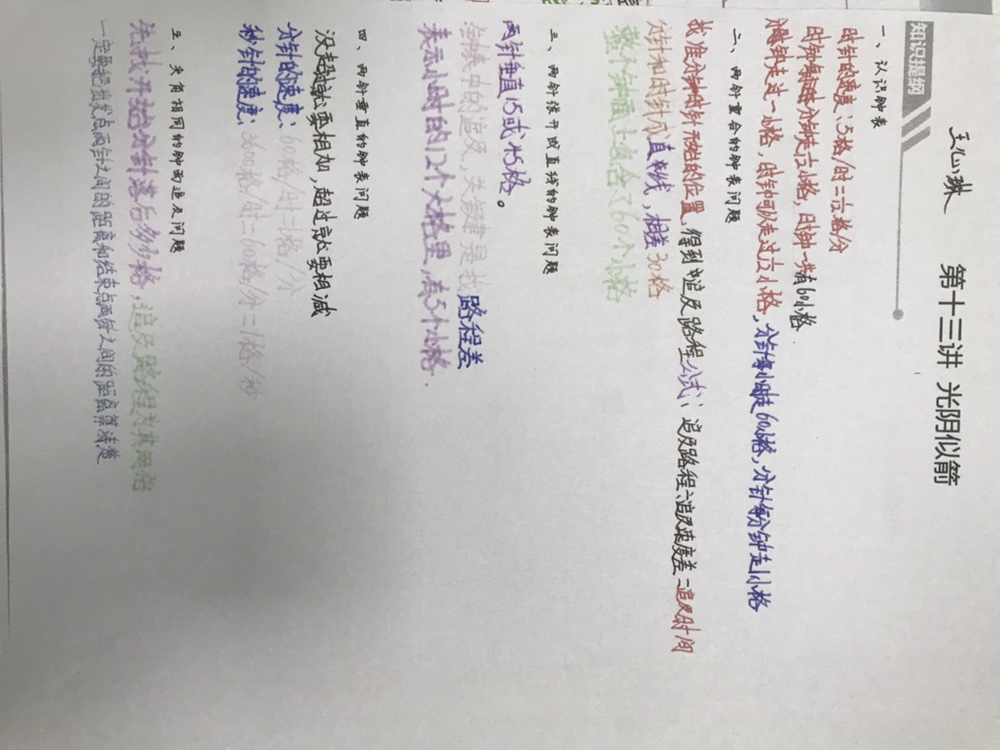 王心琳
第十三讲 光阴似箭
知识提纲
一、认识钟表
时针的速度:5格/时=1/12格/分
时钟每 分钟走 小格,时钟一共有60小格.
分针走过一小格,时针可以走过 小格,分针每小时走60小格,分针每分钟走1小格
二、两针重合的钟表问题
找准分针时针开始的位置,得到追及路程公式:追及路程÷追及速度差=追及时间
分针和时针成直线,相差30格
整个钟面上包含了60个小格
三、两针张开成直线的钟表问题
两针垂直15或45格。
钟表中的追及,关键是找路程差
表示小时的12个大格里,有5个小格.
四、两针垂直的钟表问题
没超过就要相加,超过就要相减
分针的速度:60格/时=1格/分
秒针的速度:3600格/时=60格/分=1格/秒
五、夹角相同的钟面追及问题
先找开始分针落后多少格,追及路程为其两倍
一定要把出发点两针之间的距离和结束点两针之间的距离算清楚